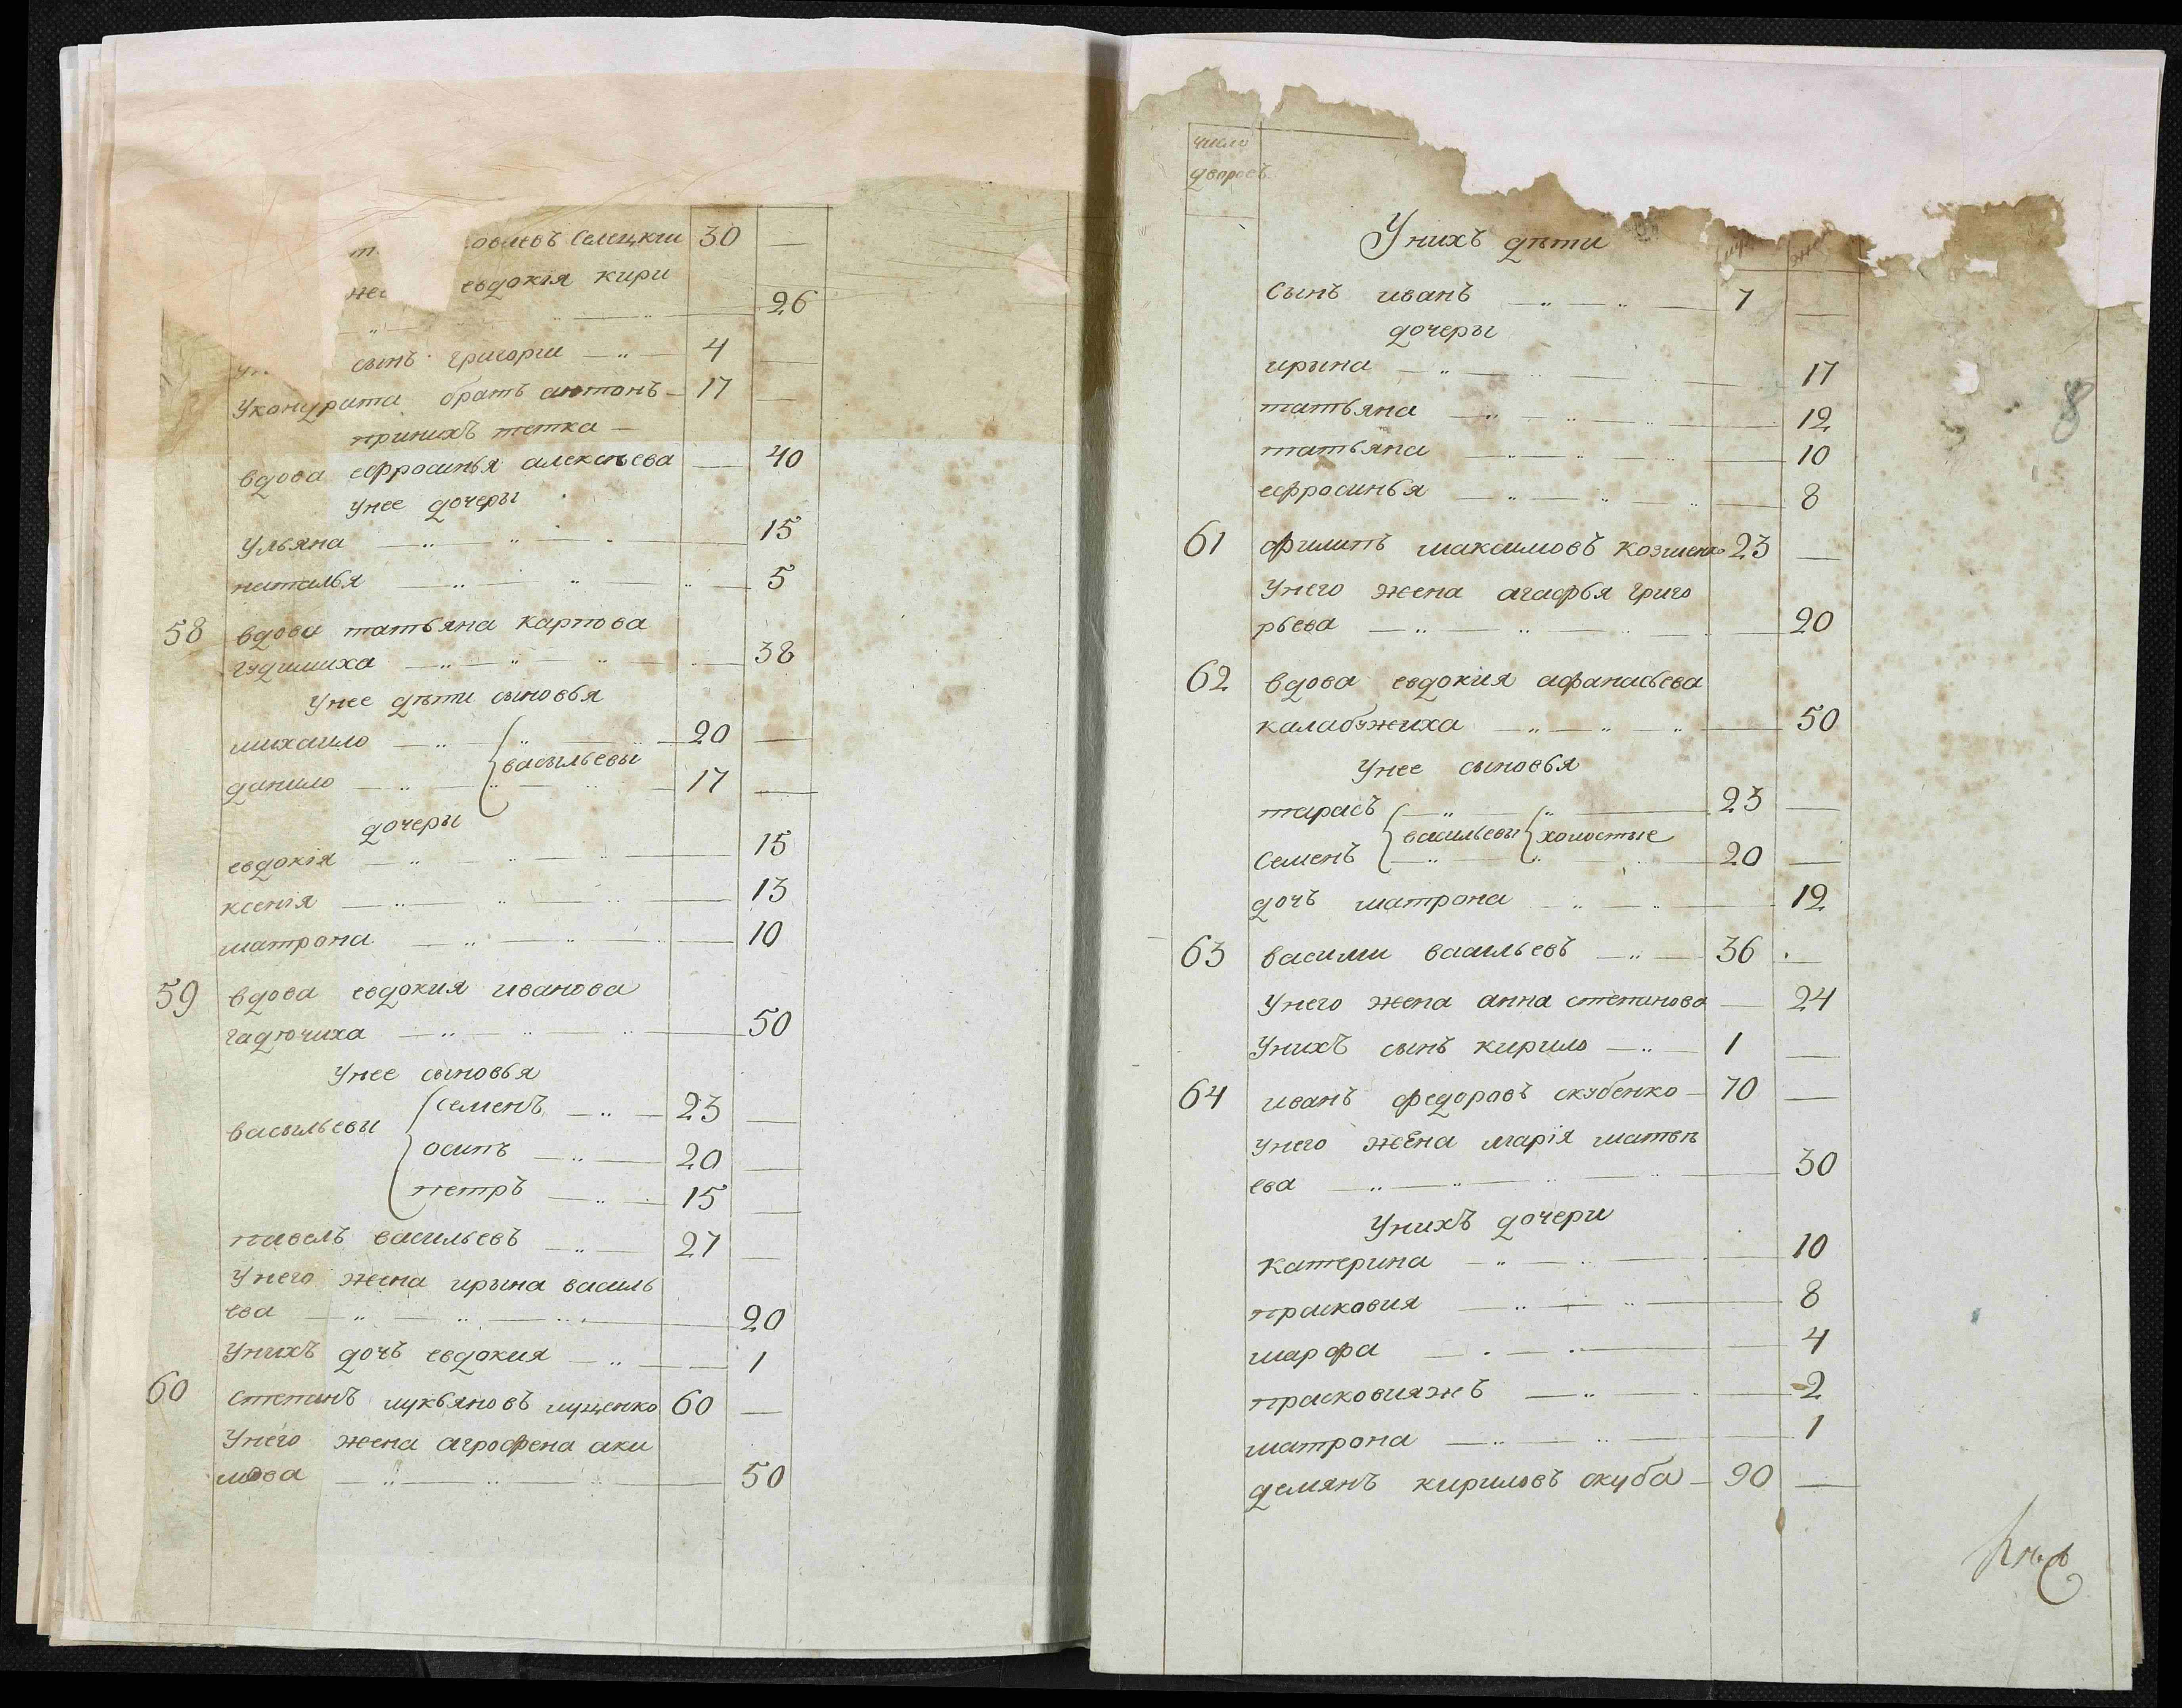 овлевъ Селецкии 30 —
евдокія кири
26
сынъ григории 4 —
Укондрата братъ антонъ 17 —
принихъ тетка
вдова ефросинья алексѣева — 40
Унее дочеры
Ульяна 15
наталья 5
58 вдова татьяна карпова
гудимиха 38
Унее дѣти сыновья
михаило 20 —
васильевы
данило 17 —
дочеры
евдокія 15
ксенія 13
матрона 10
59 вдова евдокия иванова
гадючиха 50
Унее сыновья
семенъ 23 —
васильевы
осипъ 20 —
петръ 15 —
павелъ васильевъ 27 —
Унего жена ирына василь
ева 20
Унихъ дочь евдокия 1
60 степанъ лукьяновъ луценко 60 —
Унего жена агрофена аки
мова 50
число
дворовъ
Унихъ дѣти
Сынъ иванъ 7 —
дочеры
ирына 17
татьяна 12
татьяна 10
ефросинья 8
61 филипъ максимовъ 23 —
Унего жена агафья григо
рьева 20
62 вдова евдокия афанасьева
калабужиха 50
Унее сыновья
тарасъ 23 —
васильевы холостые
Семенъ 20 —
дочь матрона 12
63 василии васильевъ 36 —
Унего жена анна степанова — 24
Унихъ сынъ кирило 1 —
64 иванъ федоровъ скубенко 70 —
Унего жена марія матвѣ
ева 30
Унихъ дочери
катерина 10
прасковия 8
марфа 4
прасковияжъ 2
матрона 1
демянъ кириловъ скуба 90 —
8